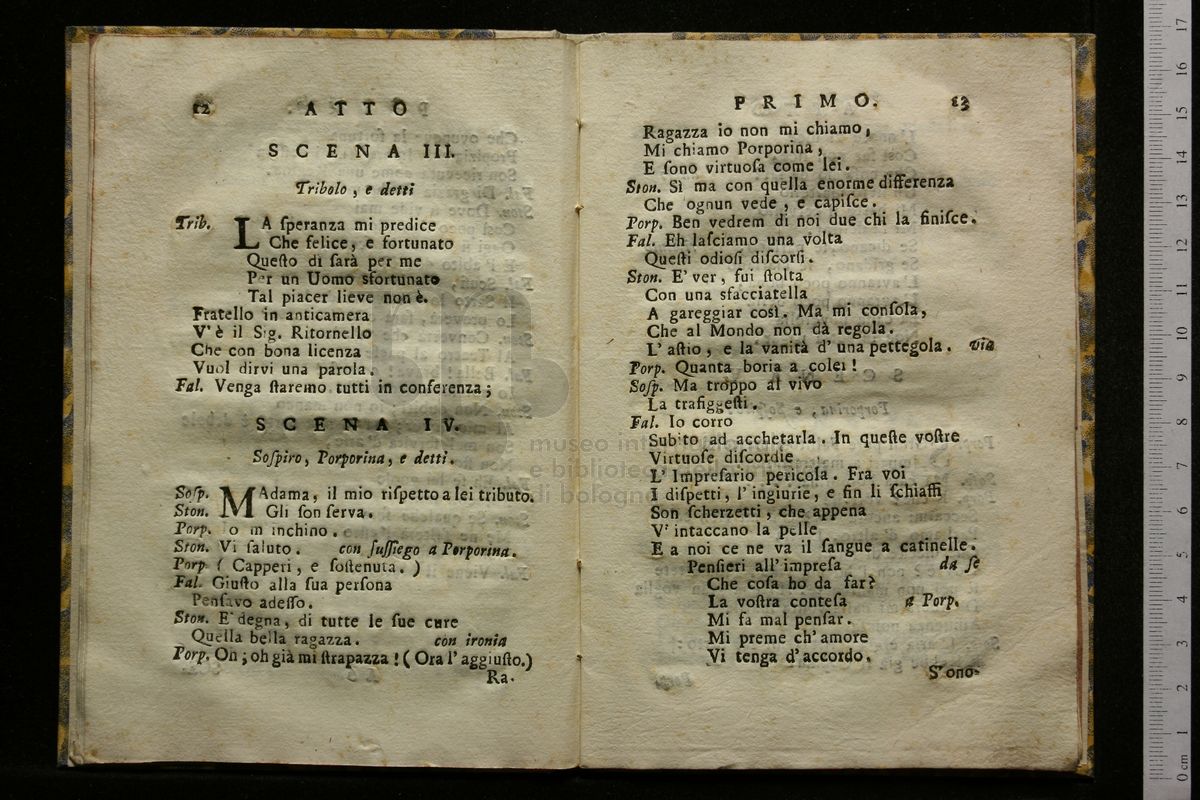 12 ATTO
SCENA III.
Tribolo, e detti
Trib. LA ſperanza mi predice
Che felice, e fortunato
Queſto dì ſarà per me
Per un Uomo sfortunato
Tal piacer lieve non è.
Fratello in anticamera
V'è il Sig. Ritornello
Che con bona licenza
Vuol dirvi una parola.
Fal. Venga ſtaremo tutti in conferenza;
SCENA IV.
Soſpiro, Porporina, e detti.
Soſp. MAdama, il mio riſpetto a lei tributo.
Ston. Gli ſon ſerva.
Porp. Io m'inchino.
Ston. Vi ſaluto. con ſuſſiego a Porporina.
Porp ( Capperi, e ſoſtenuta. )
Fal. Giuſto alla ſua perſona
Penſavo adeſſo.
Ston. E' degna, di tutte le ſue cure
Quella bella ragazza. con ironia
Porp. Oh; oh già mi ſtrapazza! (Ora l'aggiuſto.)
Ra-
PRIMO. 13
Ragazza io non mi chiamo,
Mi chiamo Porporina,
E ſono virtuoſa come lei.
Ston. Sì ma con quella enorme differenza
Che ognun vede, e capiſce.
Porp. Ben vedrem di noi due chi la finiſce.
Fal. Eh laſciamo una volta
Queſti odioſi diſcorſi.
Ston. E' ver, fui ſtolta
Con una sfacciatella
A gareggiar così. Ma mi conſola,
Che al Mondo non dà regola.
L' aſtio, e la vanità d' una pettegola. via
Porp. Quanta boria a colei!
Soſp. Ma troppo al vivo
La trafiggeſti.
Fal. Io corro
Subito ad acchetarla. In queſte voſtre
Virtuoſe diſcordie
L' Impreſario pericola. Fra voi
I diſpetti, l' ingiurie, e fin li ſchiaffi
Son ſcherzetti, che appena
V' intaccano la pelle
E a noi ce ne va il ſangue a catinelle.
Penſieri all' impreſa da ſe
Che coſa ho da far?
La voſtra conteſa a Porp.
Mi fa mal penſar.
Mi preme ch' amore
Vi tenga d' accordo.
S' ono-
museo
e biblioteca
di bologna
0 cm 1 2 3 4 5 6 7 8 9 10 11 12 13 14 15 16 17